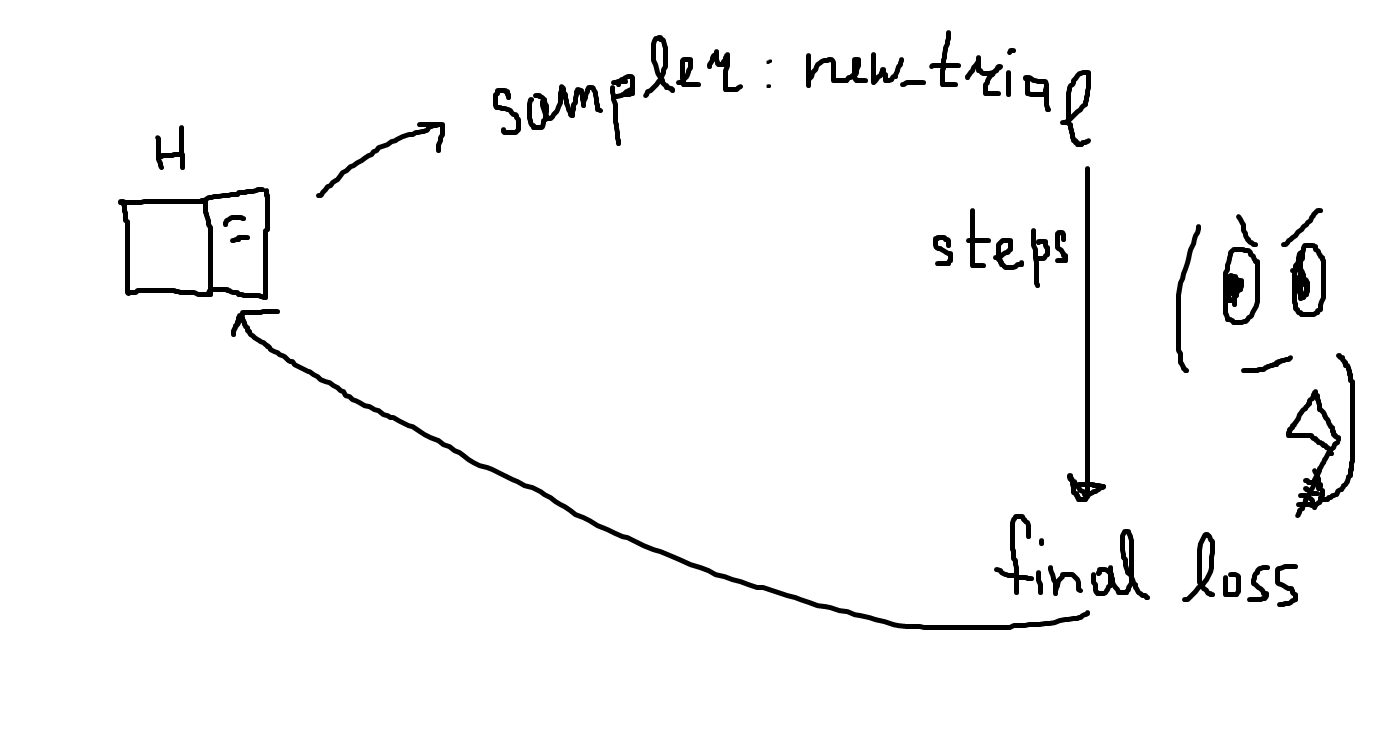 sampler: new_trial
H
steps
final loss